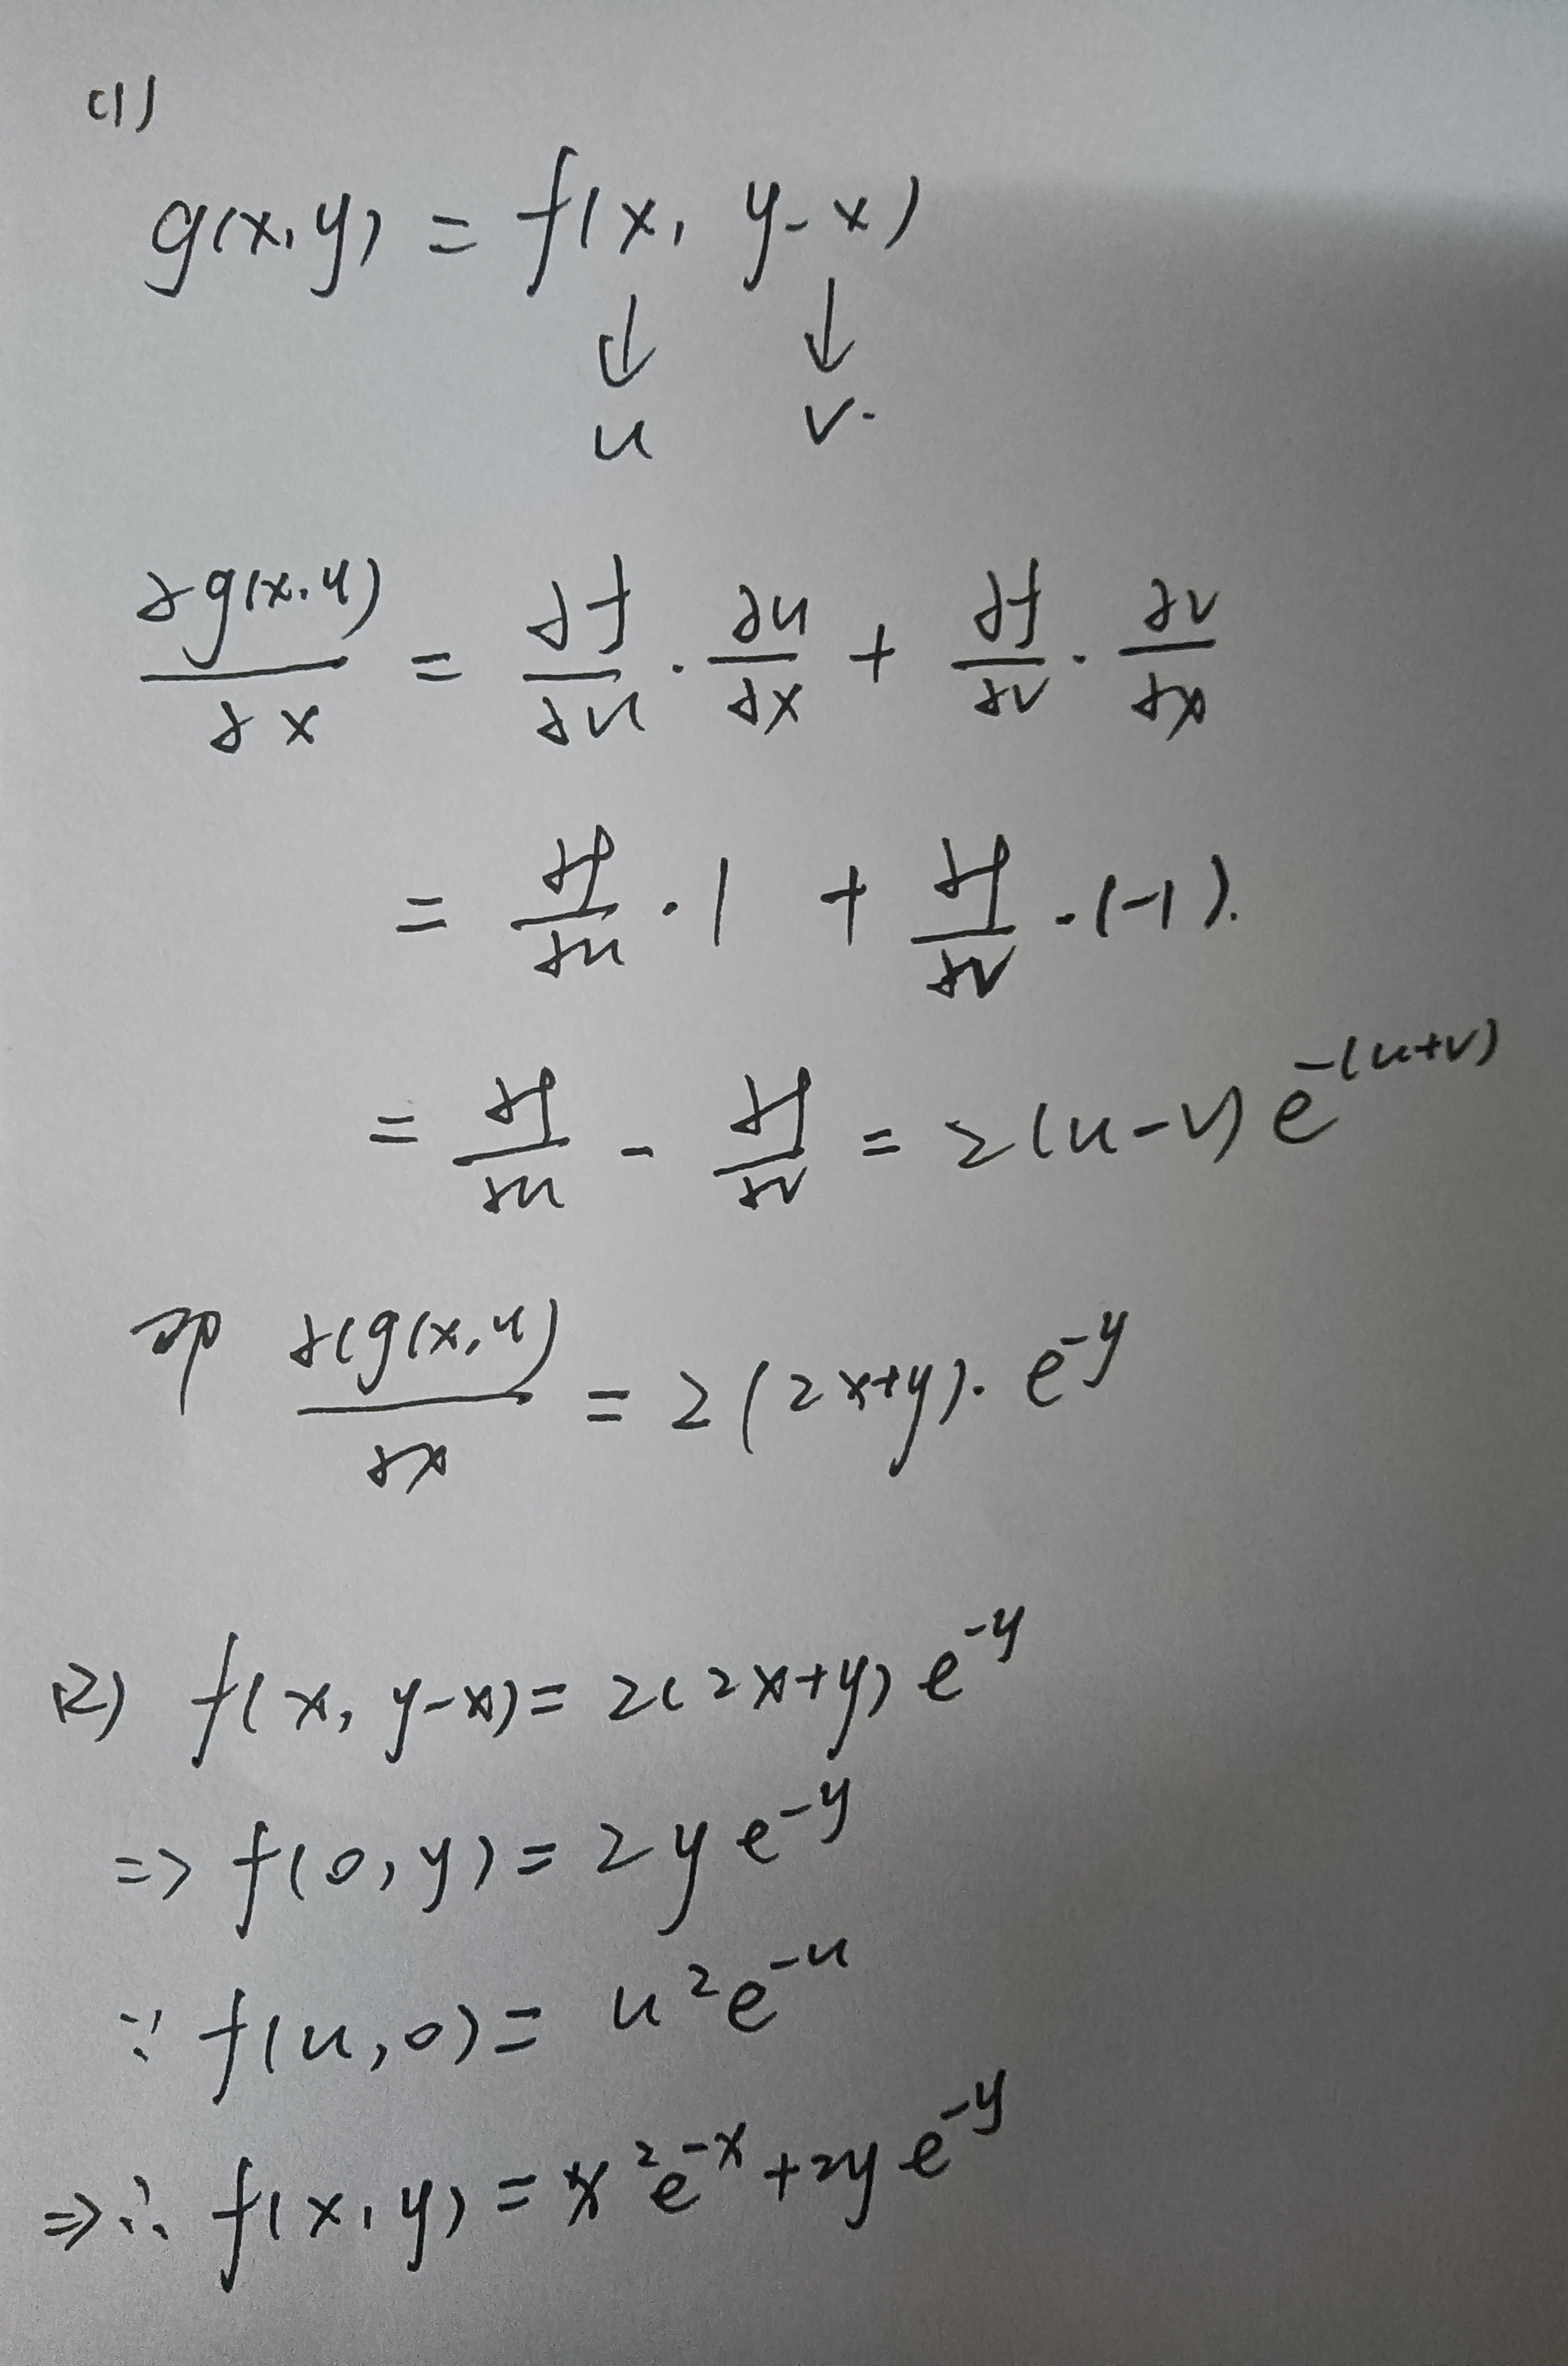 (1)
g(x,y) = f(x, y-x)
↓ ↓
u v.
∂g(x,y)/∂x = ∂f/∂u · ∂u/∂x + ∂f/∂v · ∂v/∂x
= ∂f/∂u · 1 + ∂f/∂v · (-1).
= ∂f/∂u - ∂f/∂v = 2(u-v)e^{-(u+v)}
即 ∂(g(x,y)/∂x = 2(2x+y)· e^{-y}
(2) f(x, y-x) = 2(2x+y)e^{-y}
=> f(0,y) = 2ye^{-y}
∵ f(u,0) = u²e^{-u}
=> ∴ f(x,y) = x²e^{-x}+2ye^{-y}